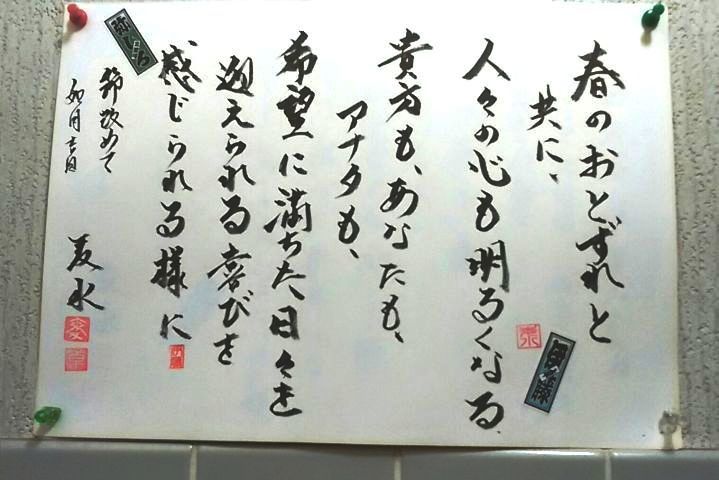 春のおとずれと
共に、
人々の心も明るくなる、
貴方も、あなたも、
アナタも、
希望に満ちた、日々を
迎えられる喜びを
感じられる様に
節改めて
如月吉日
美水